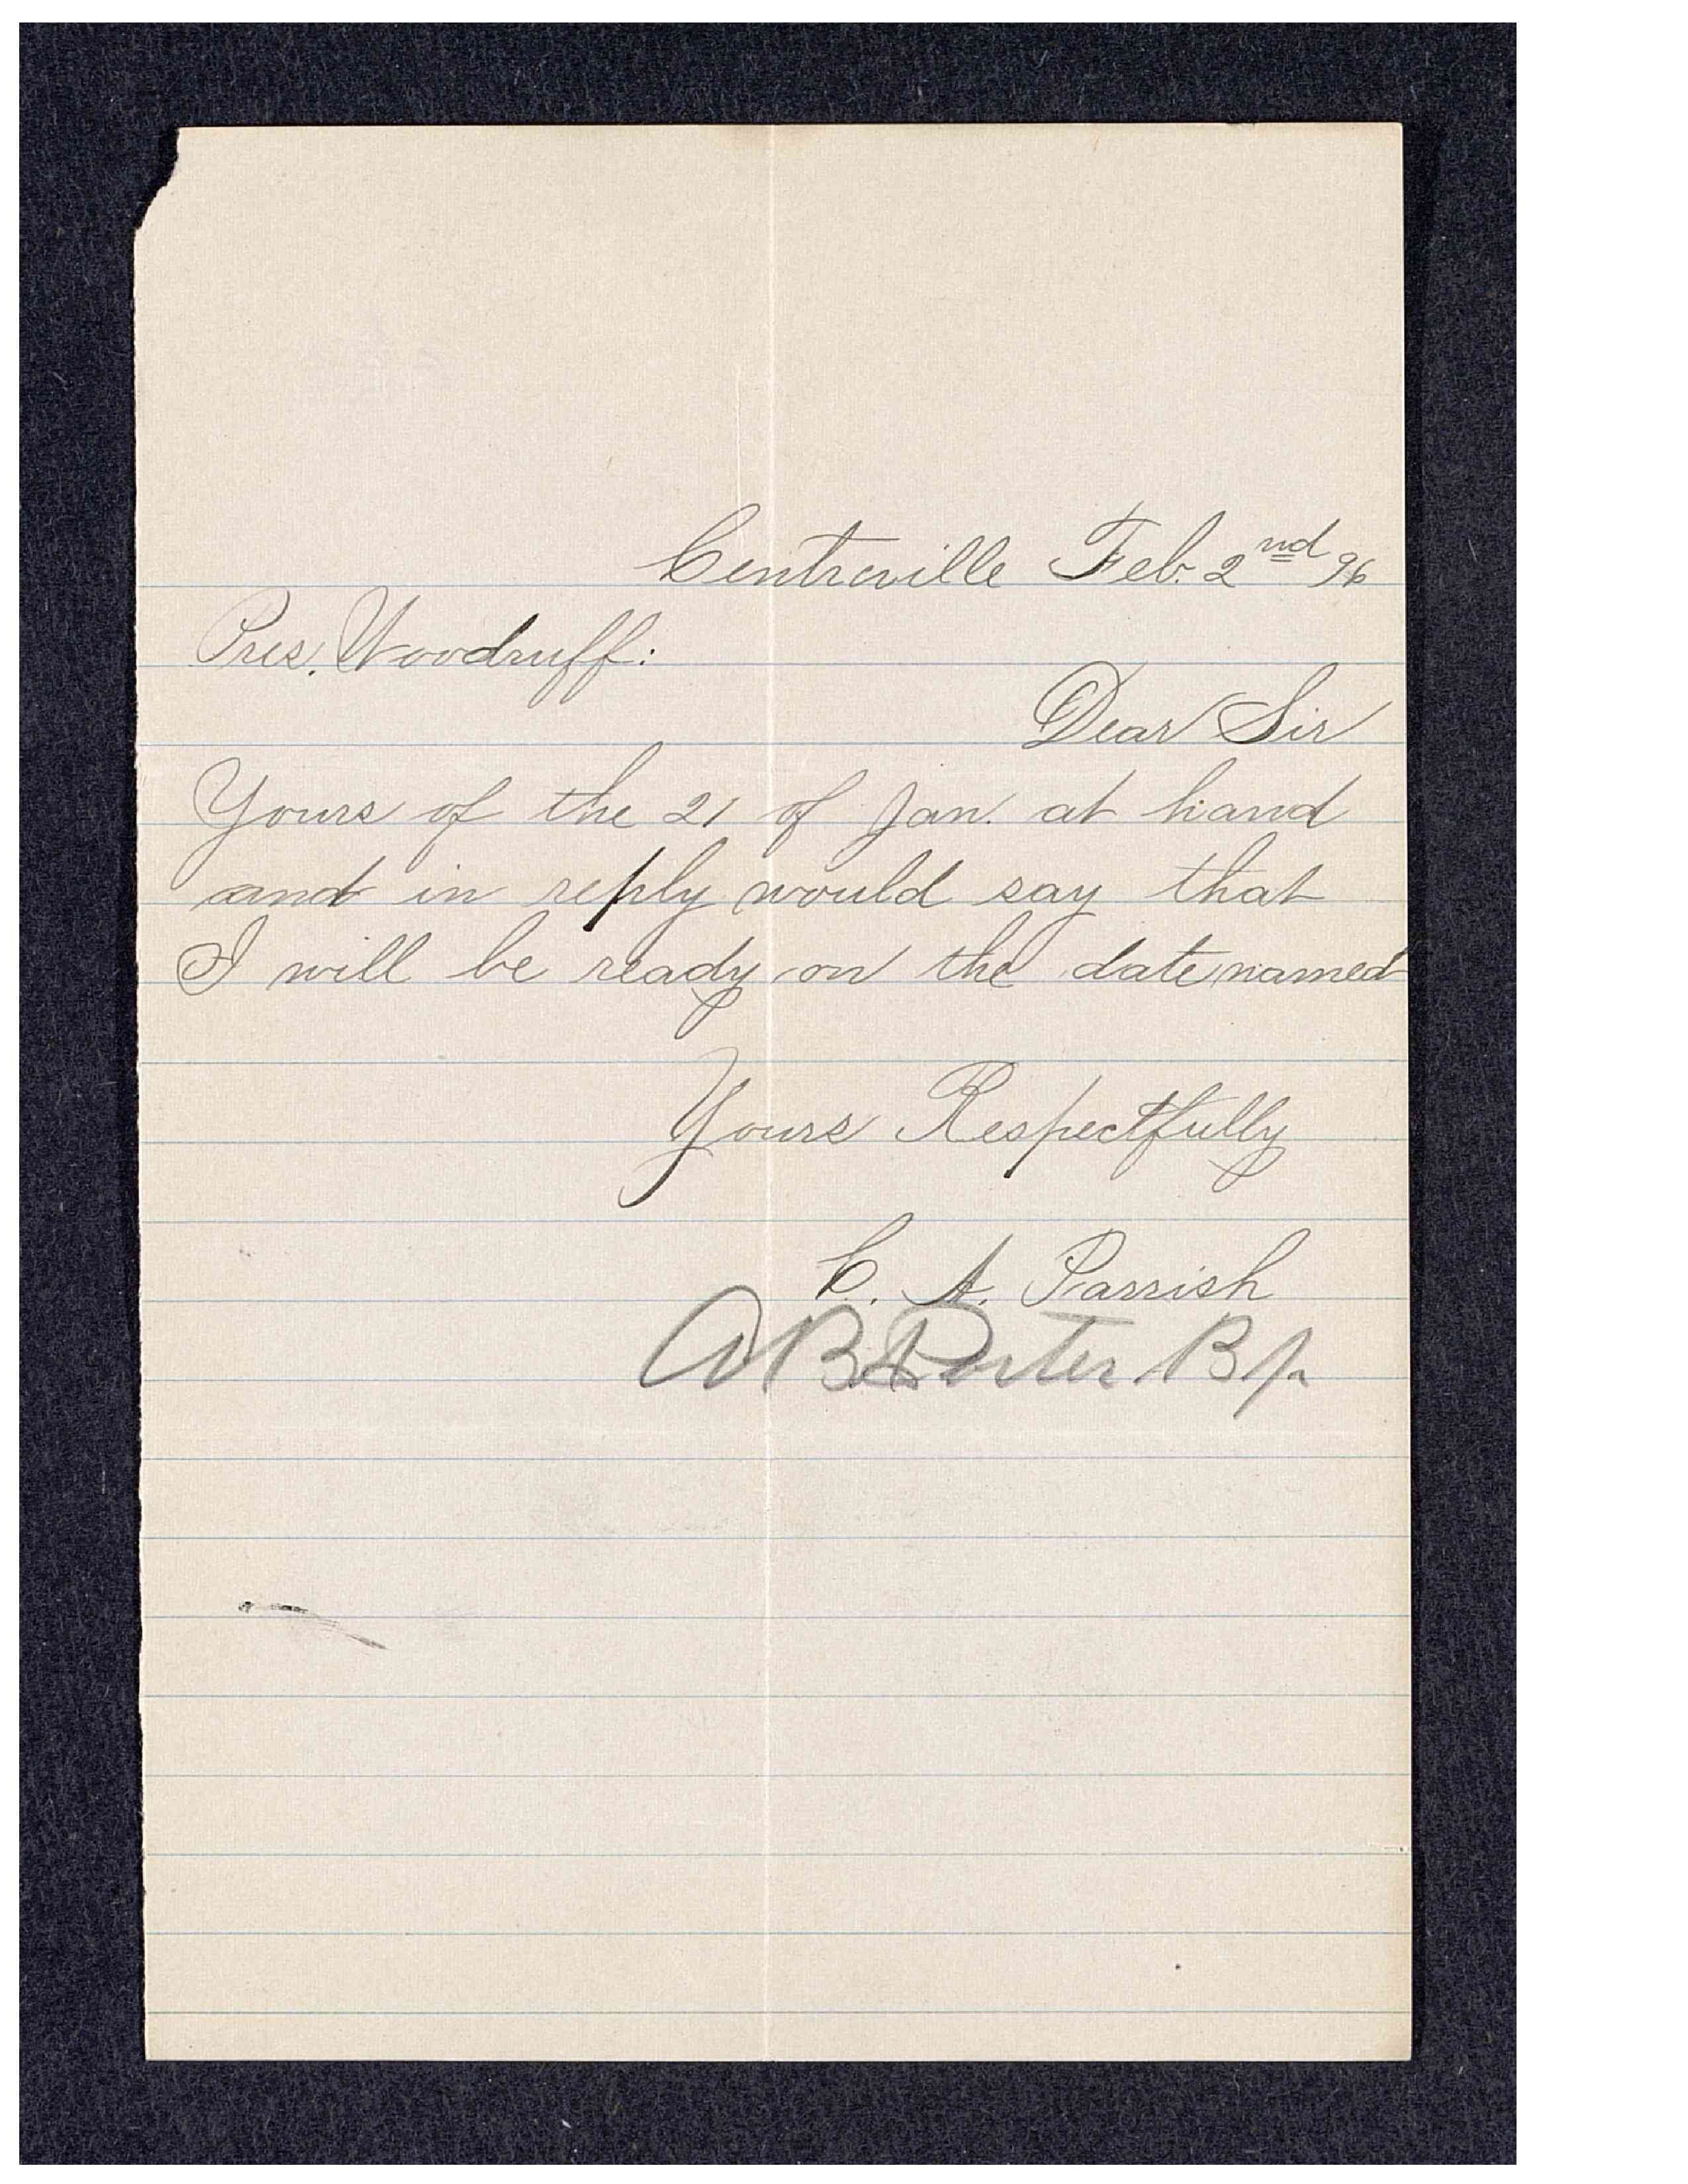 Centreville Feb. 2nd 96
Pres. Woodruff:
Dear Sir
Yours of the 21 of Jan. at hand
and in reply would say that
I will be ready on the date named
Yours Respectfully
C. A. Parrish
A B Porter Bp